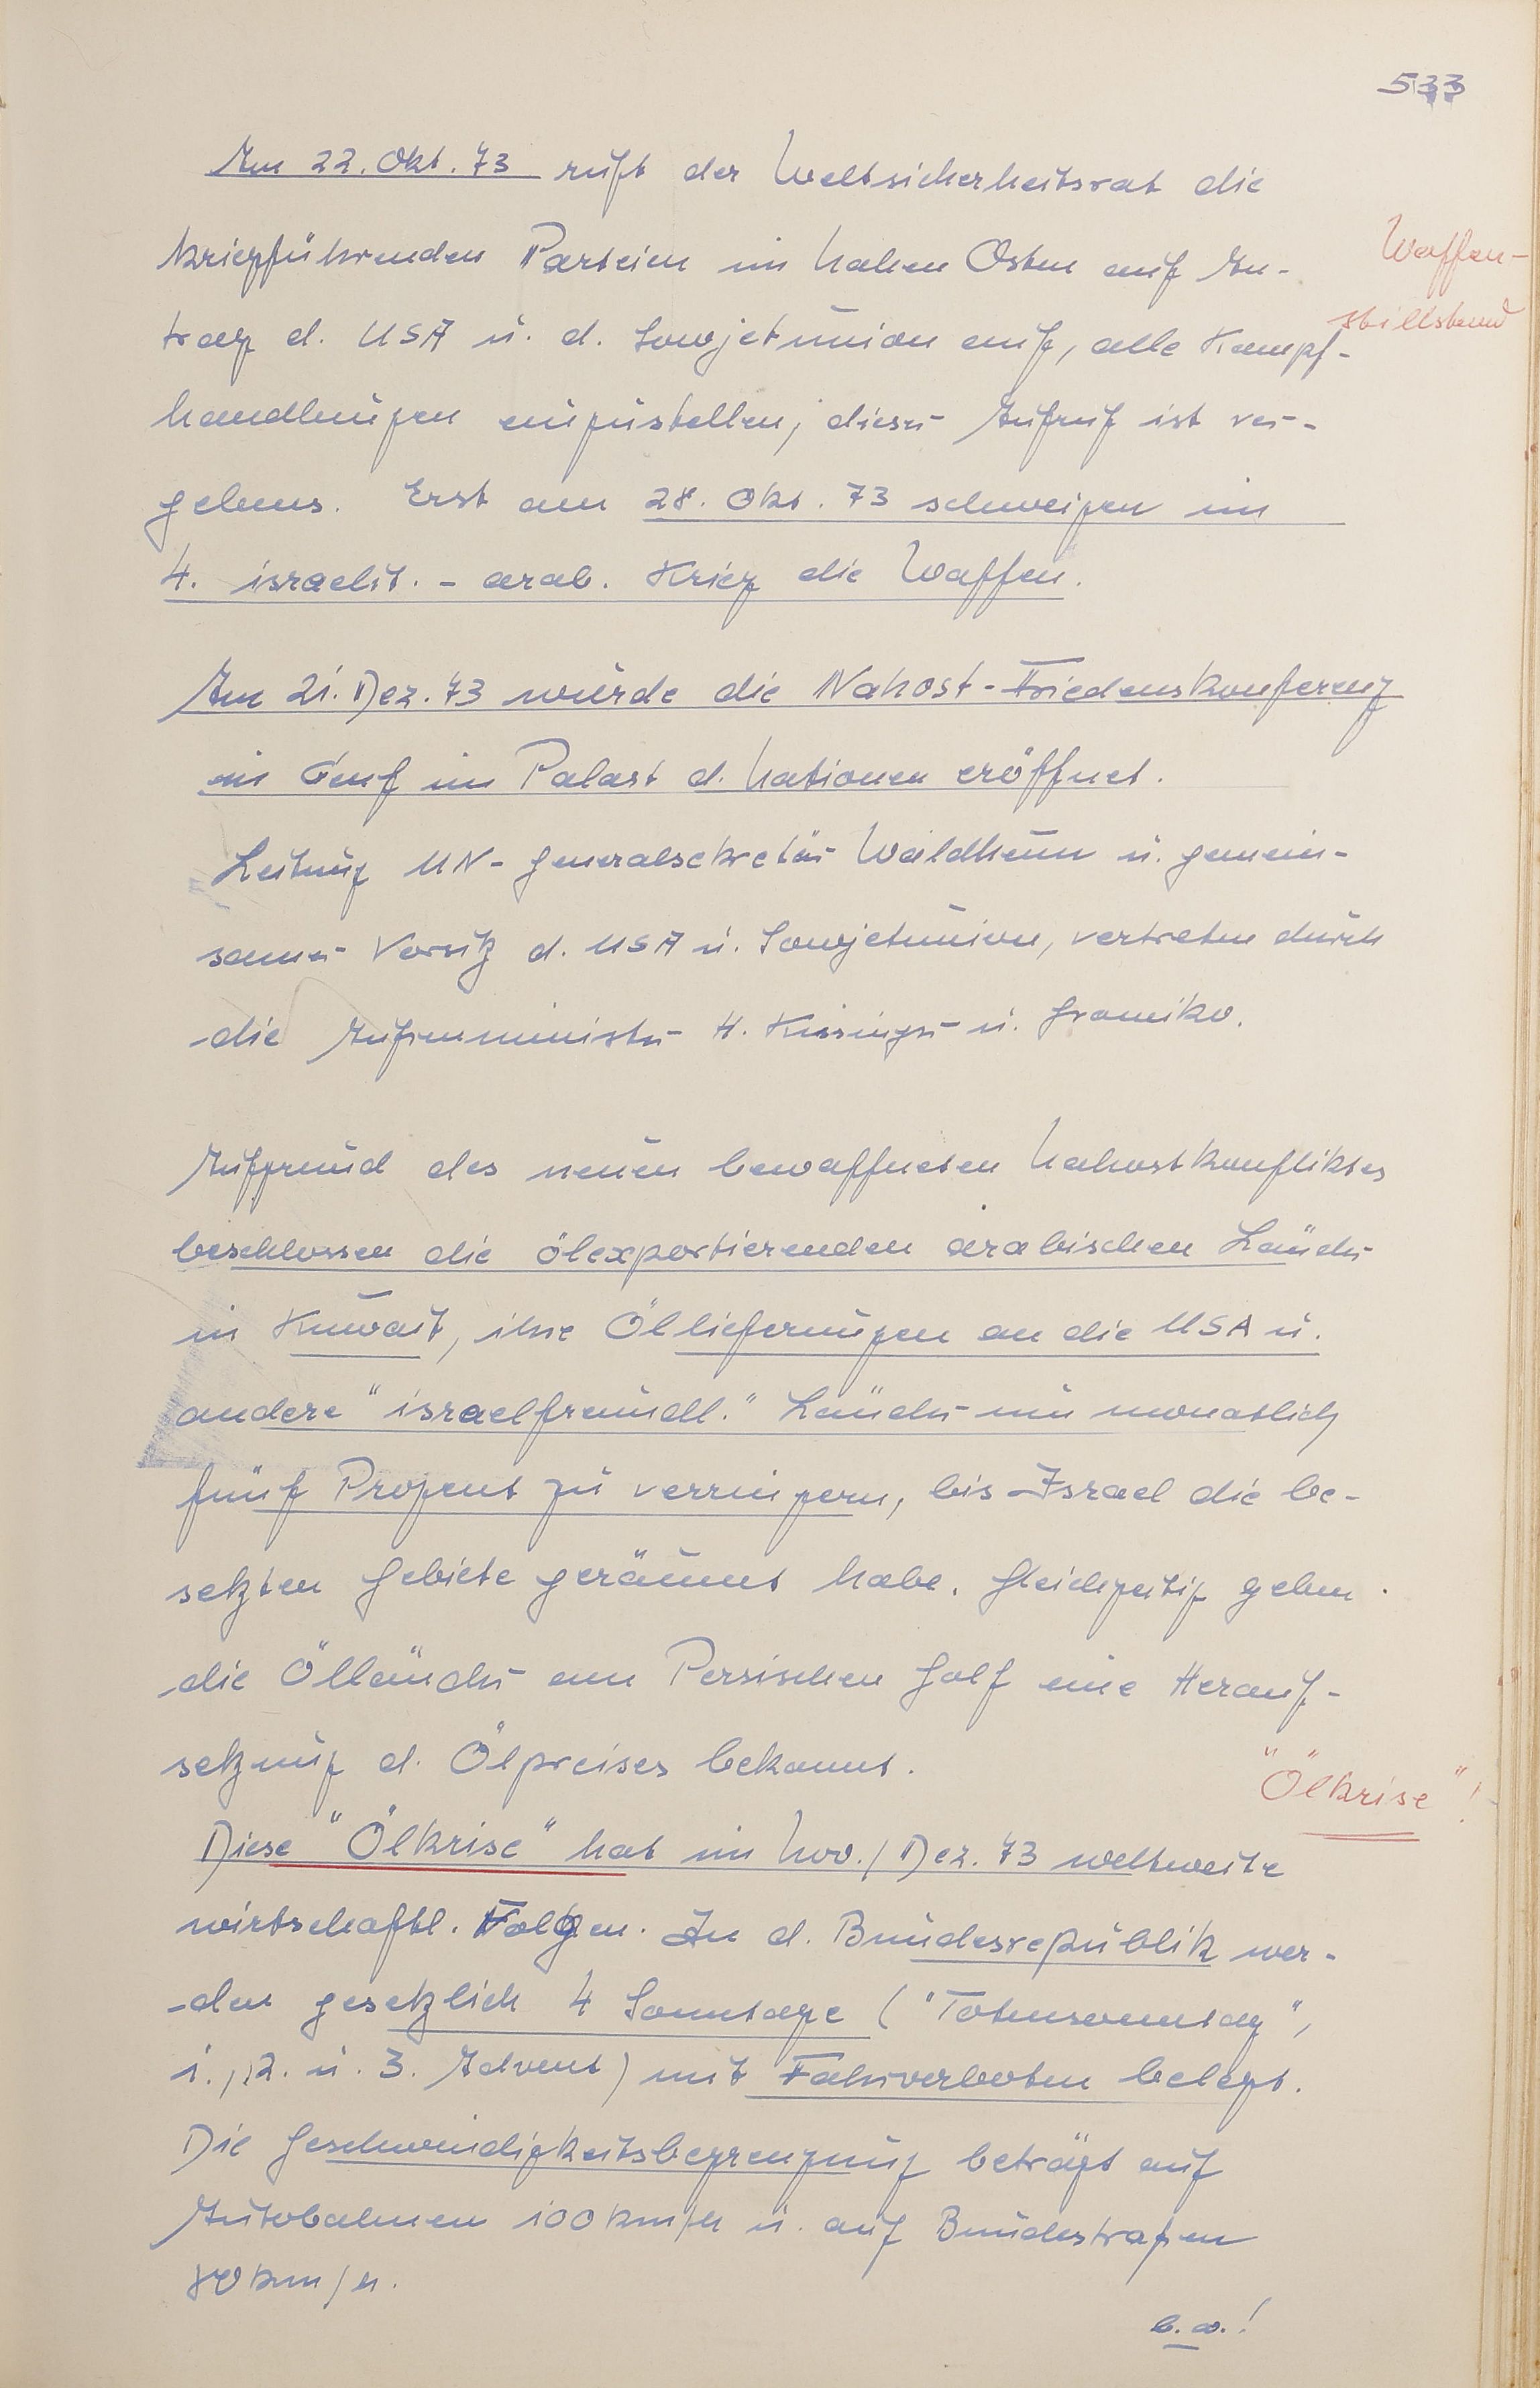 533
Am 22. Okt. 73 ruft der Weltsicherheitsrat die
kriegführenden Parteien im Nahen Osten auf An-
Waffen-
stillstand
trag d. USA u. d. Sowjetunion auf, alle Kampf-
handlungen einzustellen; dieser Aufruf ist ver-
gebens. Erst am 28. Okt. 73 schweigen im
4. israelit. - arab. Krieg die Waffen.
Am 21. Dez. 73 wurde die Nahost-Friedenskonferenz
in Genf im Palast d. Nationen eröffnet.
Leitung UN-Generalsekretär Waldheim u. gemein-
samer Vorsitz d. USA u. Sowjetunion, vertreten durch
die Außenminister H. Kissinger u. Gromiko.
Aufgrund des neuen bewaffneten Nahostkonfliktes
beschlossen die ölexportierenden arabischen Länder
in Kuwait, ihre Öllieferungen an die USA u.
andere "israelfreundl." Länder um monatlich
fünf Prozent zu verringern, bis Israel die be-
setzten Gebiete geräumt habe. Gleichzeitig geben
die Ölländer am Persischen Golf eine Herauf-
setzung d. Ölpreises bekannt.
"Ölkrise"!
Diese "Ölkrise" hat im Nov./Dez. 73 weltweite
wirtschaftl. Folgen. In d. Bundesrepublik wer-
den gesetzlich 4 Sonntage ("Totensonntag",
1., 2. u. 3. Advent) mit Fahrverboten belegt.
Die Geschwindigkeitsbegrenzung beträgt auf
Autobahnen 100 km/h u. auf Bundestraßen
80 km/h.
b. w.!